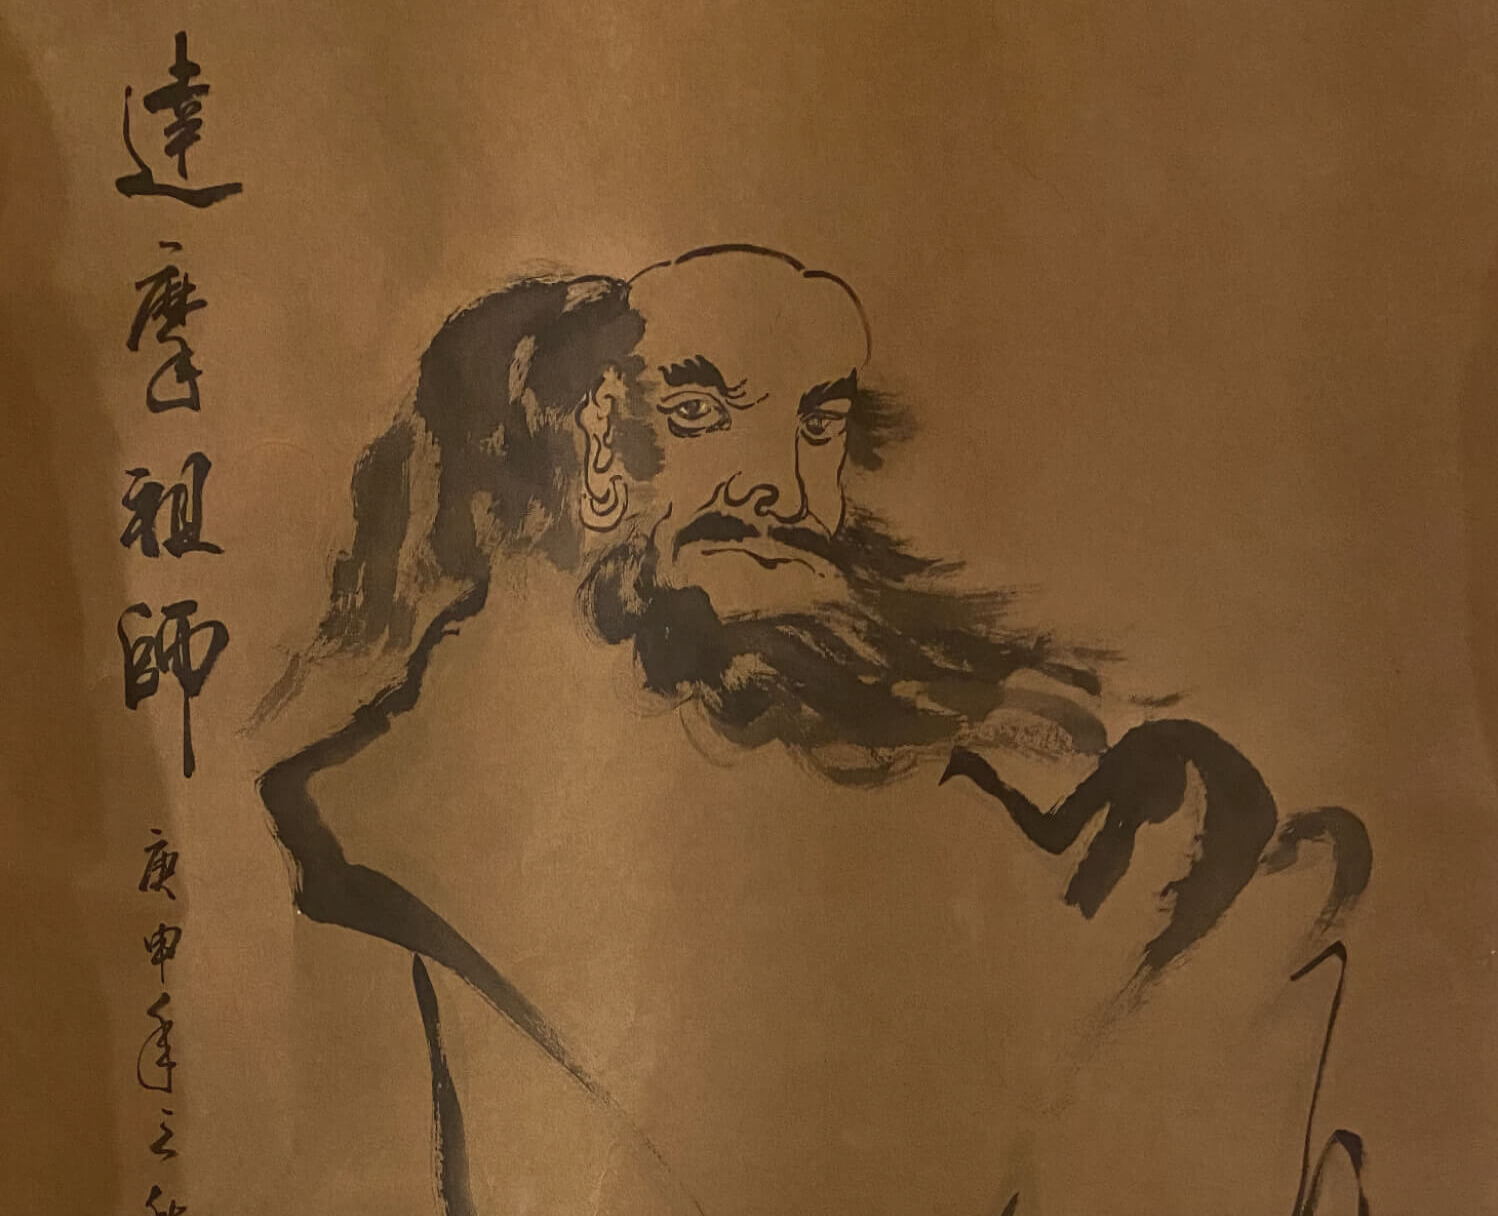 達摩祖師
庚申年之秋